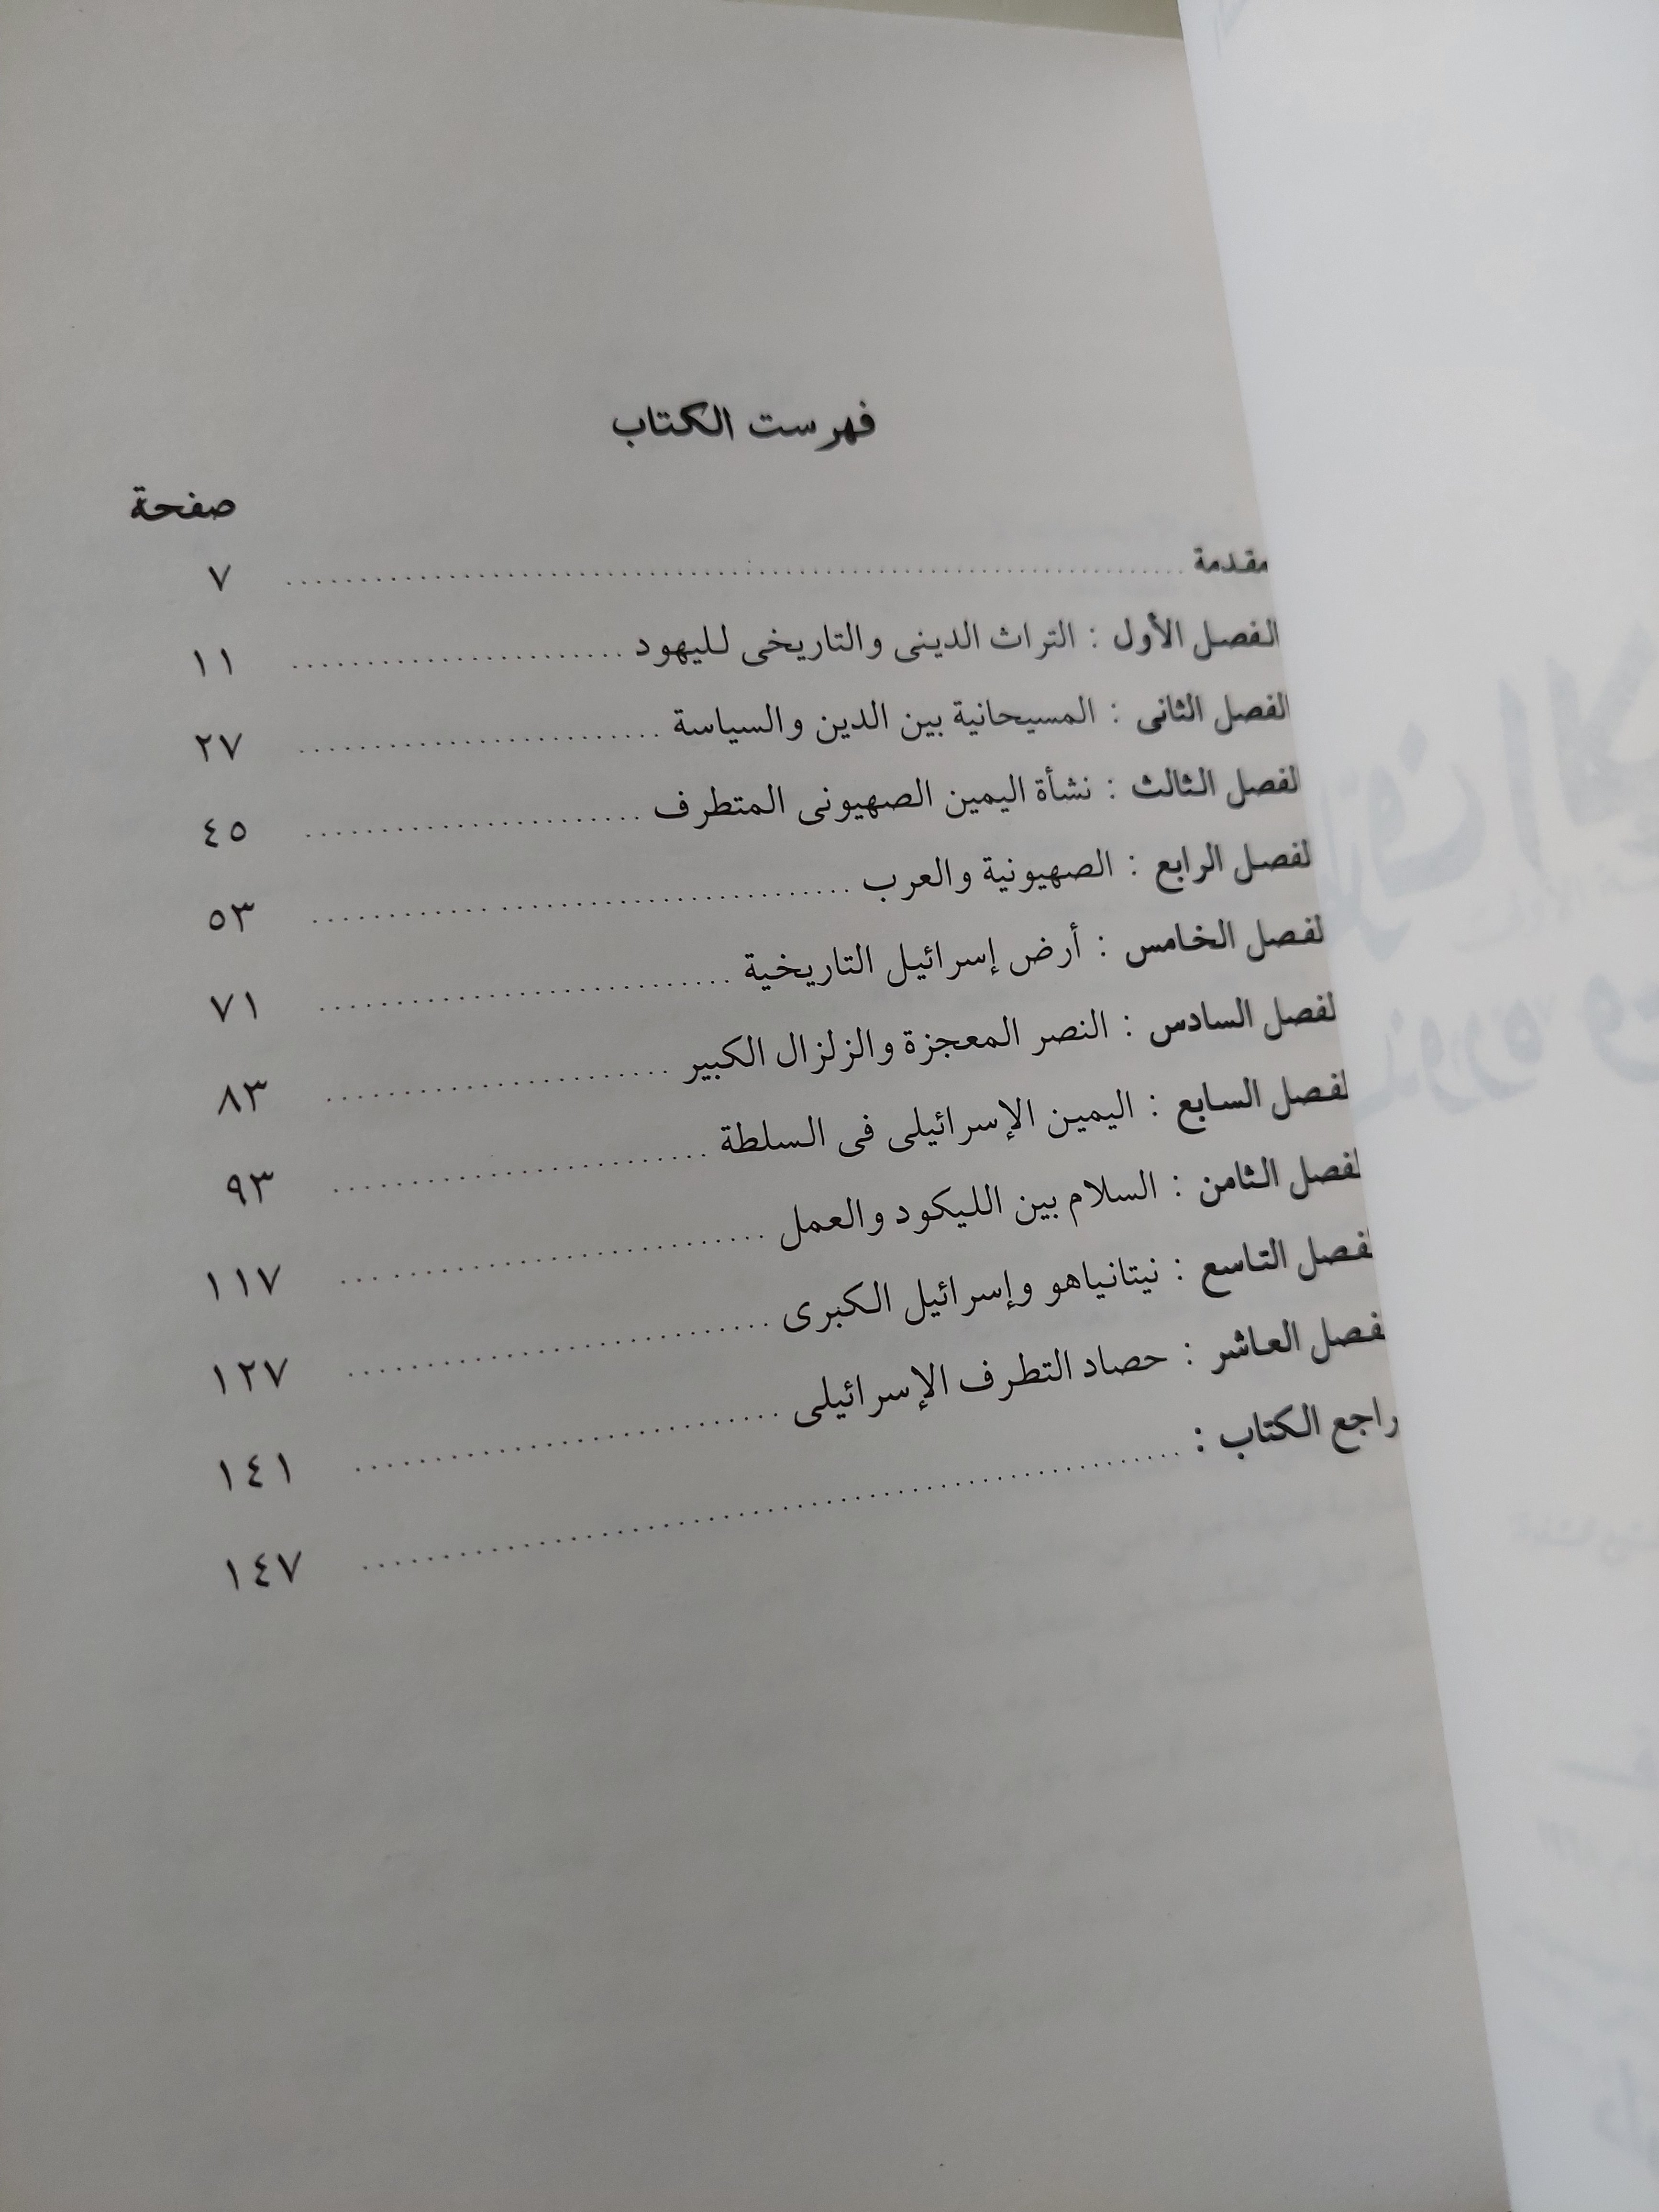 فهرست الكتاب
صفحة
مقدمة ........ ٧
الفصل الأول : التراث الدينى والتاريخى لليهود ........ ١١
الفصل الثانى : المسيحانية بين الدين والسياسة ........ ٢٧
لفصل الثالث : نشأة اليمين الصهيونى المتطرف ........ ٤٥
لفصل الرابع : الصهيونية والعرب ........ ٥٣
لفصل الخامس : أرض إسرائيل التاريخية ........ ٧١
لفصل السادس : النصر المعجزة والزلزال الكبير ........ ٨٣
لفصل السابع : اليمين الإسرائيلى فى السلطة ........ ٩٣
لفصل الثامن : السلام بين الليكود والعمل ........ ١١٧
لفصل التاسع : نيتانياهو وإسرائيل الكبرى ........ ١٢٧
فصل العاشر : حصاد التطرف الإسرائيلى ........ ١٤١
راجع الكتاب : ........ ١٤٧